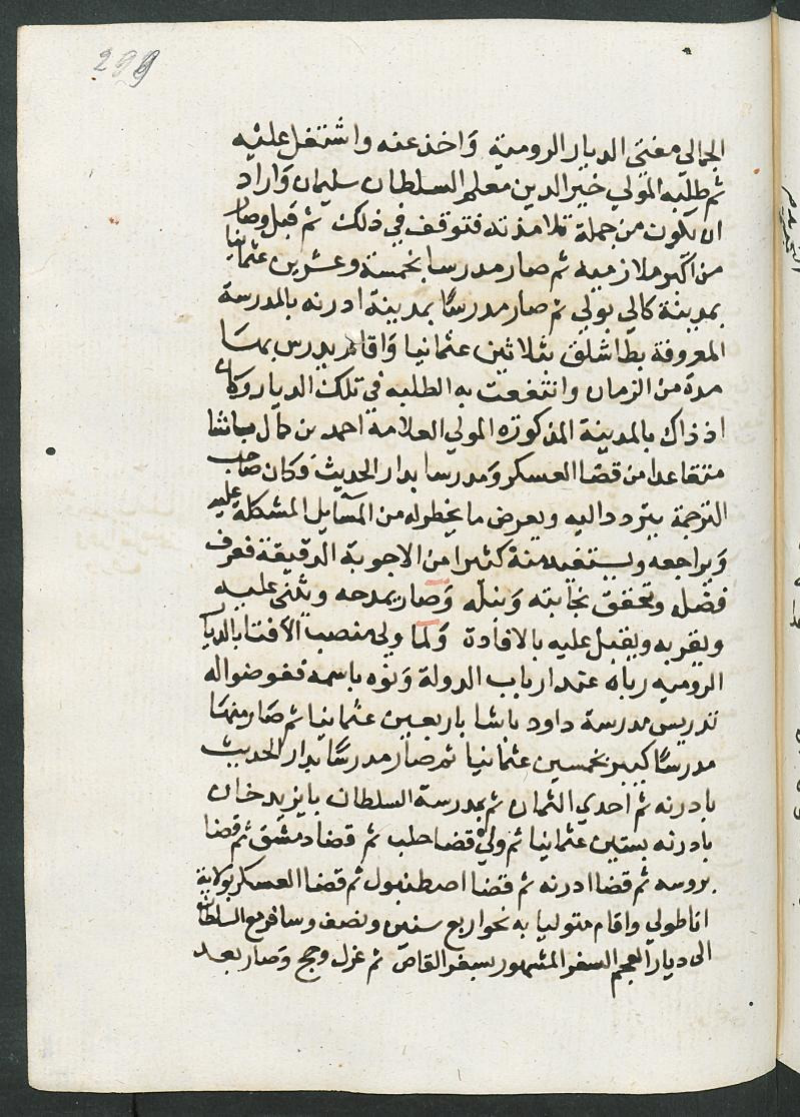 299
الجمالي مفتى الديار الرومية وَاخذ عنه واشتغل عليْه
ثم طلبه المَولي خير الدين معلم السلطان سليمان وَاراد
ان يكون من جملة تلامذته فتوقف في ذلك ثم قبل وصار
من اكبر ملازميه ثم صار مدرسا بخمسة وعشرين عثمانيا
بمدينة كالي بولي ثم صار مدرسًا بمدينة ادرنه بالمدرسة
المعروفة بطاشلق بثلاثين عثمانيا وَاقام يدرس بهَا
مدة من الزمان وانتفعت به الطلبه في تلك الديار وكان
اذ ذاك بالمدينة المذكوره المولي العلامة احمد بن كمال باشا
متقاعدا من قضا العسكر وَمدرسا بدار الحديث وَكان صاحب
الترجمة يتردد اليه ويعرض ما يخطر له من المسَايل المشكلة عليه
وَيراجعه ويستفيد منه كثيرا من الاجوبة الدقيقة فعرف
فضله وتحقق نجابته وَنبله وَصار يمدحه ويثنى عليه
ويقربه ويقبل عليه بالافادة وَلما ولى منصب الافتا بالديار
الروميه رباه عند ارباب الدولة وَنوه باسمه ففوضوا له
تدريس مدرسة داود باشا باربعين عثمانيا ثم صَار منهَا
مدرسًا بخمسين عثمانيا ثم صار مدرسًا بدار الحديث
بادرنه ثم احدي الثمان ثم بمدرسة السلطان بايزيد خان
بادرنه بستين عثمانيا ثم ولي قضا حلب ثم قضا دمشق ثم قضا
بروسه ثم قضا ادرنه ثم قضا اصطنبول ثم قضا العسكر بولاية
اناطولي واقام متوليا به نحو اربع سنين ونصف وسافر مع السلطان
الى ديار العجم السفر المشهور بسفر القاص ثم عزل وحج وَصار بعد